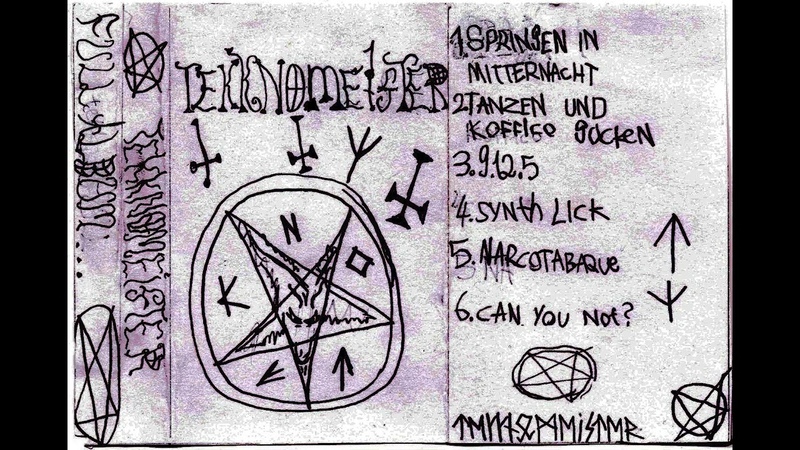 FULL ALBUM...
TEKKNOMEISTER
TEKKNOMEISTER
K N O
1. SPRINGEN IN
MITTERNACHT
2. TANZEN UND
KOFFIEO GUCKEN
3. 9.12.5
4. SYNTH LICK
5. NARCOTABAQUE
6. CAN YOU NOT?